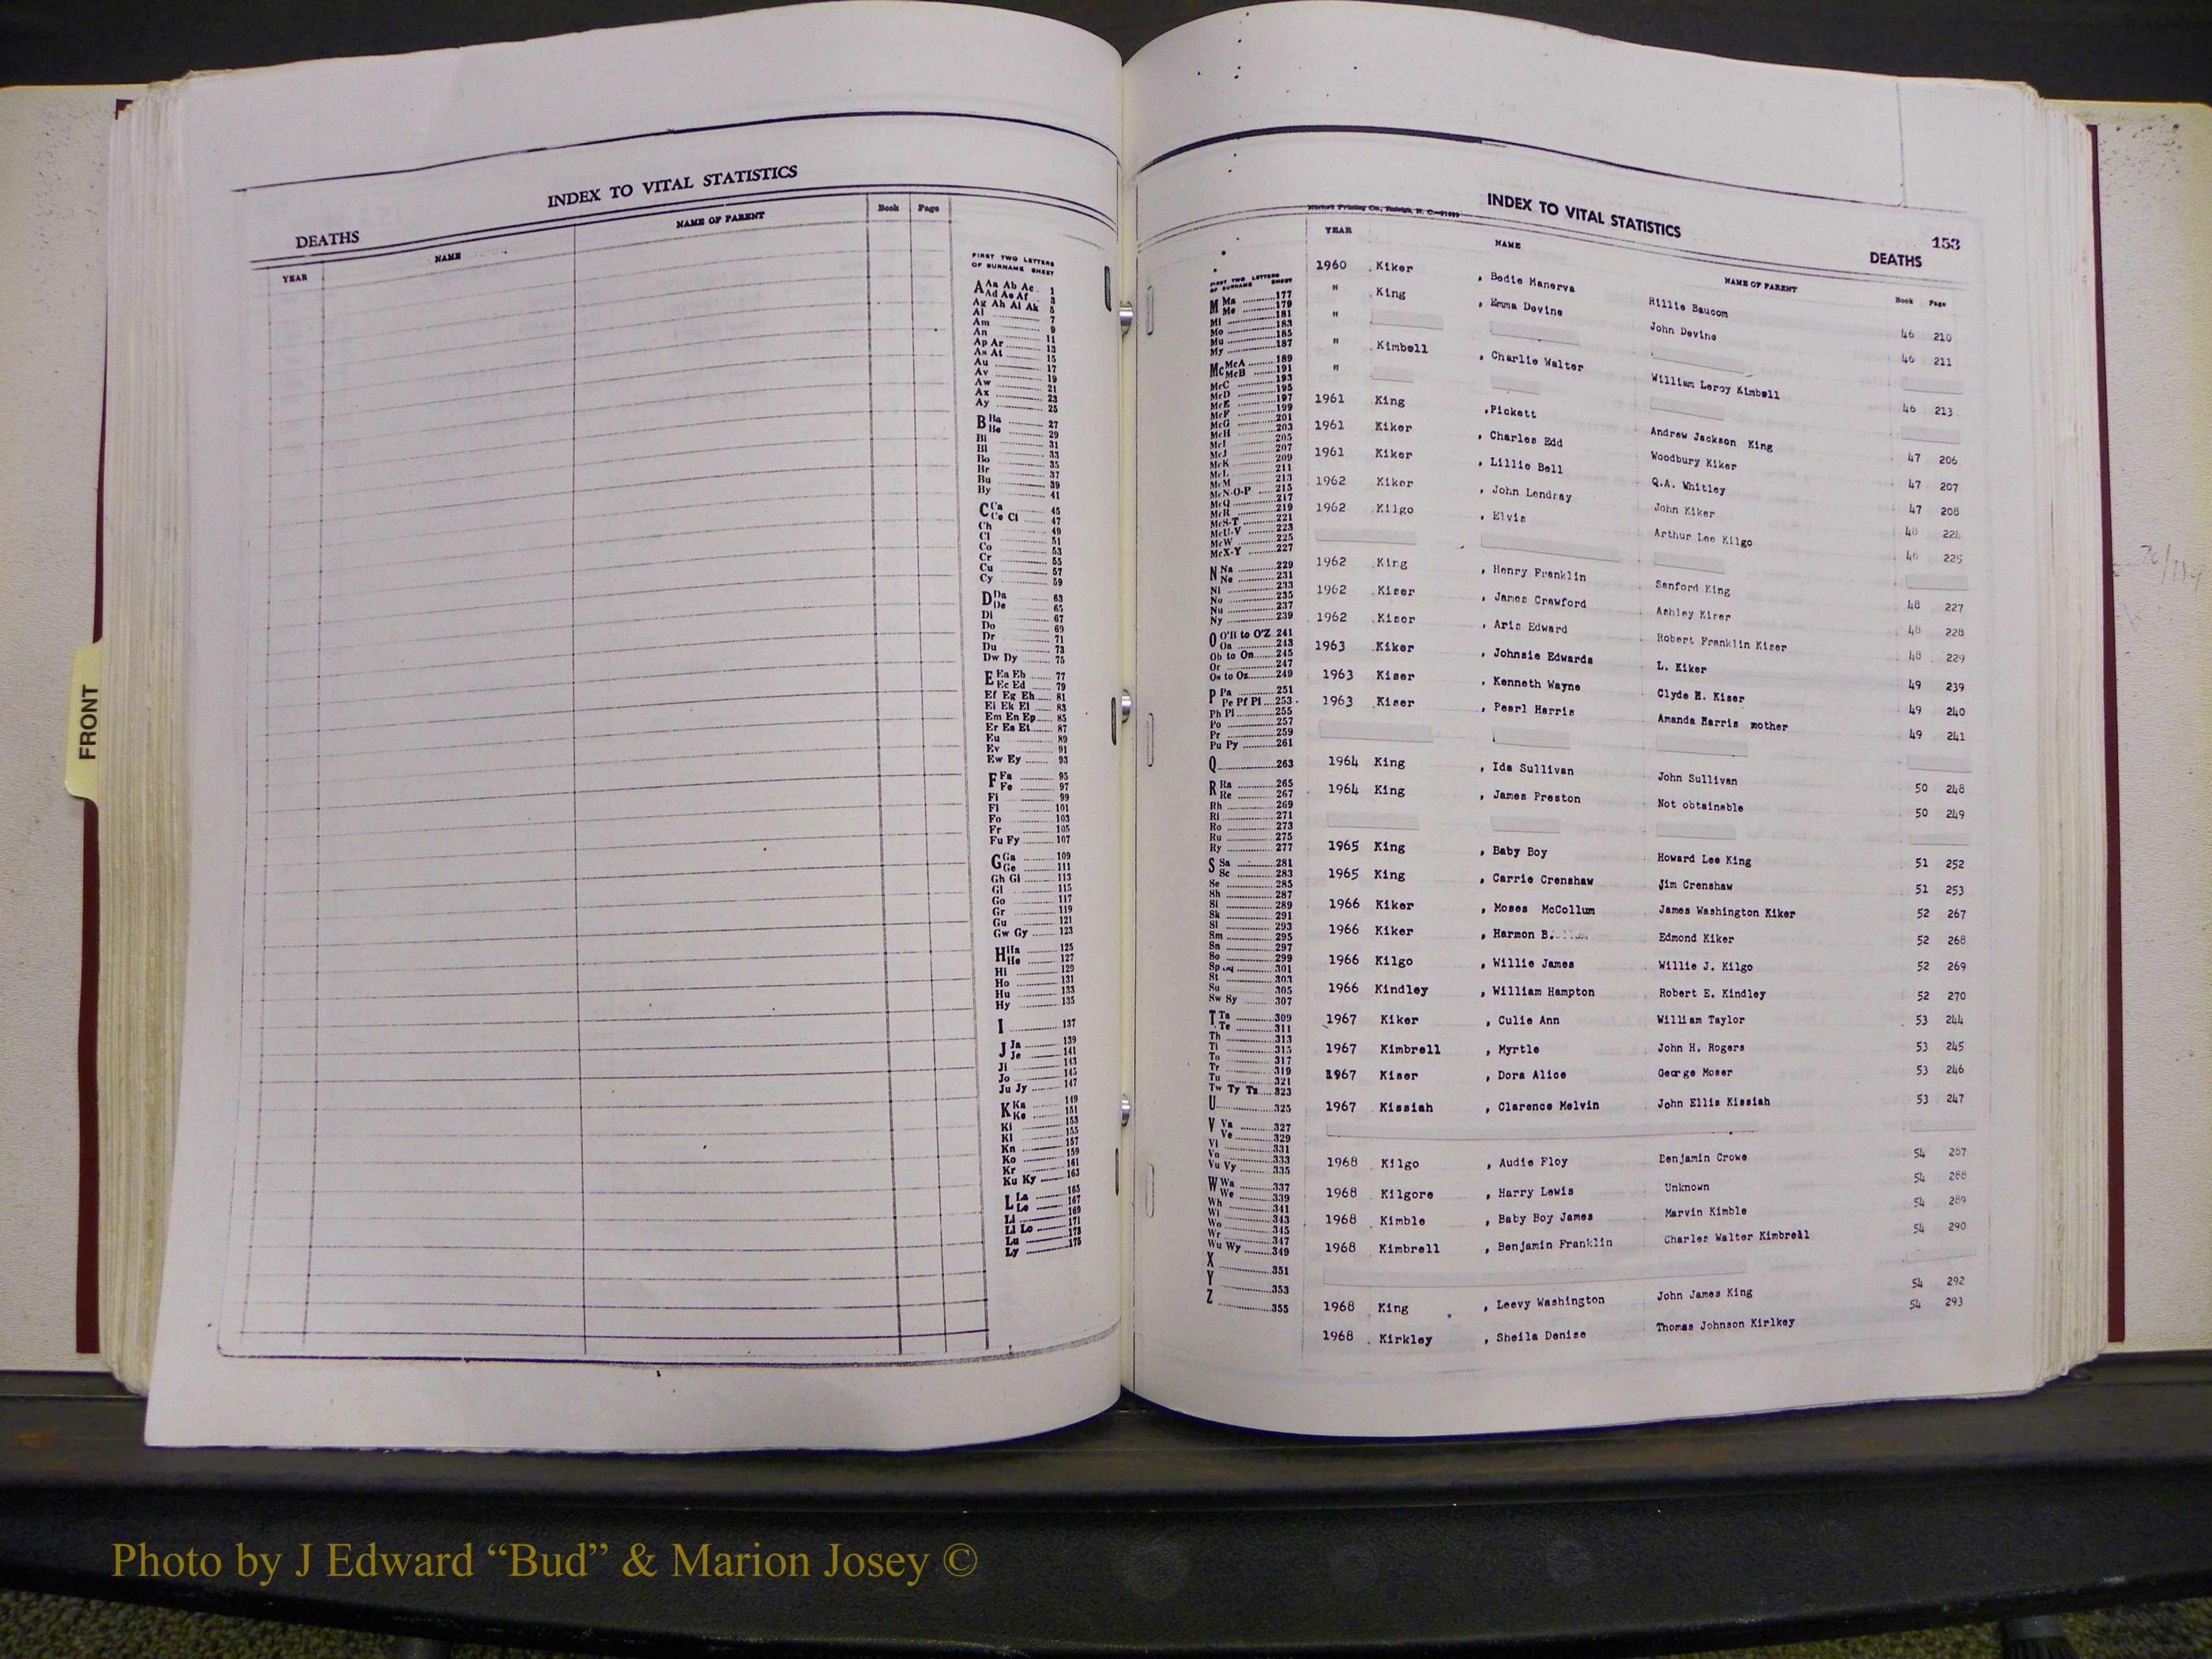 FRONT
INDEX TO VITAL STATISTICS
DEATHS
YEAR NAME NAME OF PARENT Book Page
FIRST TWO LETTERS
OF SURNAME SHEET
A Aa Ab Ac 1
Ad Ae Af 3
Ag Ah Ai Ak 5
Al 7
Am 9
An 11
Ap Ar 13
As At 15
Au 17
Av 19
Aw 21
Ax 23
Ay 25
B Ba 27
Be 29
Bi 31
Bl 33
Bo 35
Br 37
Bu 39
By 41
C Ca 45
Ce Ci 47
Ch 49
Cl 51
Co 53
Cr 55
Cu 57
Cy 59
D Da 63
De 65
Di 67
Do 69
Dr 71
Du 73
Dw Dy 75
E Ea Eb 77
Ec Ed 79
Ef Eg Eh 81
Ei Ek El 83
Em En Ep 85
Er Es Et 87
Eu 89
Ev 91
Ew Ey 93
F Fa 95
Fe 97
Fi 99
Fl 101
Fo 103
Fr 105
Fu Fy 107
G Ga 109
Ge 111
Gh Gi 113
Gl 115
Go 117
Gr 119
Gu 121
Gw Gy 123
H Ha 125
He 127
Hi 129
Ho 131
Hu 133
Hy 135
I 137
J Ja 139
Je 141
Ji 143
Jo 145
Ju Jy 147
K Ka 149
Ke 151
Ki 153
Kl 155
Kn 157
Ko 159
Kr 161
Ku Ky 163
L La 165
Le 167
Li 169
Ll Lo 171
Lu 173
Ly 175
INDEX TO VITAL STATISTICS
153
DEATHS
YEAR NAME NAME OF PARENT Book Page
FIRST TWO LETTERS
OF SURNAME SHEET
M Ma 177
Me 179
Mi 181
Mo 183
Mu 185
My 187
Mc McA 189
McB 191
McC 193
McD 195
McE 197
McF 199
McG 201
McH 203
McI 205
McJ 207
McK 209
McL 211
McM 213
McN-O-P 215
McQ 217
McR 219
McS-T 221
McU-V 223
McW 225
McX-Y 227
N Na 229
Ne 231
Ni 233
No 235
Nu 237
Ny 239
O O'B to O'Z 241
Oa 243
Ob to On 245
Or 247
Os to Oz 249
P Pa 251
Pe Pf Pi 253
Ph Pl 255
Po 257
Pr 259
Pu Py 261
Q 263
R Ra 265
Re 267
Rh 269
Ri 271
Ro 273
Ru 275
Ry 277
S Sa 281
Sc 283
Se 285
Sh 287
Si 289
Sk 291
Sl 293
Sm 295
Sn 297
So 299
Sp Sq 301
St 303
Su 305
Sw Sy 307
T Ta 309
Te 311
Th 313
Ti 315
To 317
Tr 319
Tu 321
Tw Ty Tz 323
U 325
V Va 327
Ve 329
Vi 331
Vo 333
Vu Vy 335
W Wa 337
We 339
Wh 341
Wi 343
Wo 345
Wr 347
Wu Wy 349
X 351
Y 353
Z 355
1960 Kiker , Bodie Manerva Hillie Baucom 46 210
" King , Emma Devine John Devine 46 211
"
" Kimbell , Charlie Walter William Leroy Kimbell 46 213
"
1961 King ,Pickett Andrew Jackson King 47 206
1961 Kiker , Charles Edd Woodbury Kiker 47 207
1961 Kiker , Lillie Bell Q.A. Whitley 47 208
1962 Kiker , John Lendray John Kiker 48 224
1962 Kilgo , Elvis Arthur Lee Kilgo 48 225
1962 King , Henry Franklin Sanford King 48 227
1962 Kiser , James Crawford Ashley Kiser 48 228
1962 Kiser , Aris Edward Robert Franklin Kiser 48 229
1963 Kiker , Johnsie Edwards L. Kiker 49 239
1963 Kiser , Kenneth Wayne Clyde H. Kiser 49 240
1963 Kiser , Pearl Harris Amanda Harris mother 49 241
1964 King , Ida Sullivan John Sullivan 50 248
1964 King , James Preston Not obtainable 50 249
1965 King , Baby Boy Howard Lee King 51 252
1965 King , Carrie Crenshaw Jim Crenshaw 51 253
1966 Kiker , Moses McCollum James Washington Kiker 52 267
1966 Kiker , Harmon B. Edmond Kiker 52 268
1966 Kilgo , Willie James Willie J. Kilgo 52 269
1966 Kindley , William Hampton Robert E. Kindley 52 270
1967 Kiker , Culie Ann William Taylor 53 244
1967 Kimbrell , Myrtle John H. Rogers 53 245
1967 Kiser , Dora Alice George Moser 53 246
1967 Kissiah , Clarence Melvin John Ellis Kissiah 53 247
1968 Kilgo , Audie Floy Benjamin Crowe 54 287
1968 Kilgore , Harry Lewis Unknown 54 288
1968 Kimble , Baby Boy James Marvin Kimble 54 289
1968 Kimbrell , Benjamin Franklin Charles Walter Kimbrell 54 290
1968 King , Leevy Washington John James King 54 292
1968 Kirkley , Sheila Denise Thomas Johnson Kirlkey 54 293
Photo by J Edward “Bud” & Marion Josey ©